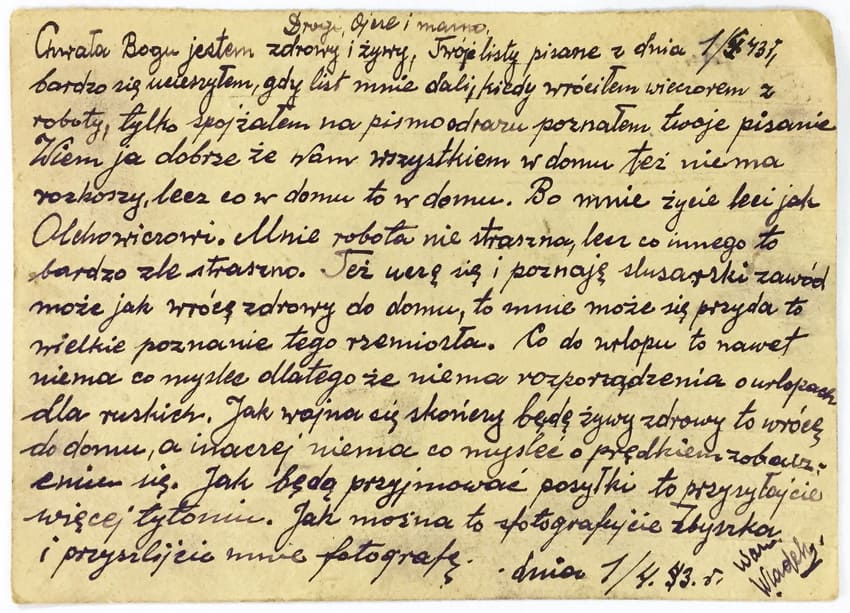 Drogi, Ojcze i mamo.
Chwała Bogu jestem zdrowy i żywy, Twoje listy pisane z dnia 1/3 43 r,
bardzo się ucieszyłem, gdy list mnie dali, kiedy wróciłem wieczorem z
roboty, tylko spojżałem na pismo odrazu poznałem twoje pisanie
Wiem ja dobrze że wam wszystkiem w domu też niema
rozkoszy, lecz co w domu to w domu. Bo mnie życie leci jak
Olchowiczowi. Mnie robota nie straszna, lecz co innego to
bardzo złe straszno. Też uczę się i poznaję slusarski zawód
może jak wrócę zdrowy do domu, to mnie może się przyda to
wielkie poznanie tego rzemiosła. Co do urlopu to nawet
niema co mysleć dlatego że niema rozporządzenia o urlopach
dla ruskich. Jak wojna się skończy będę żywy zdrowy to wrócę
do domu, a inaczej niema co mysleć o prędkiem zobacz-
eniu się. Jak będą przyjmować posyłki to przysyłajcie
więcej tytoniu. Jak można to sfotografujcie Zbyszka
i przyszlijcie mnie fotografę.
dnia 1/4. 43. r.
Wam
Władek.